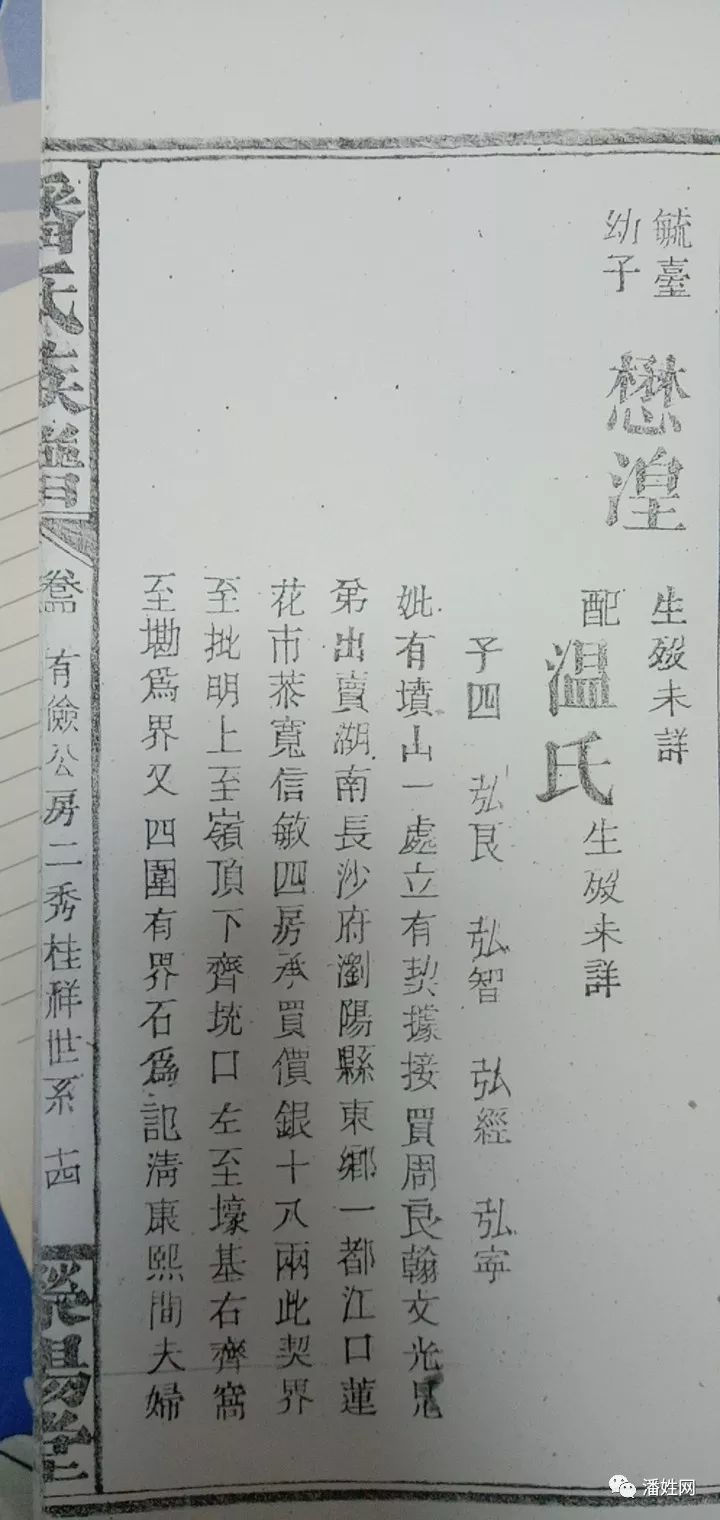 毓臺
幼子
懋湟
生殁未詳
配温氏生殁未詳
子四 弘艮 弘智 弘經 弘寜
妣有墳山一處立有契據接買周良翰文光兄
弟出賣湖南長沙府瀏陽縣東鄉一都江口蓮
花市恭寬信敏四房承買價銀十八兩此契界
至批明上至嶺頂下齊垙口左至壕基右齊窩
至墈爲界又四圍有界石爲記清康熙間夫婦
潘氏族譜
卷 有儉公房二秀桂祥世系 十四
滎陽堂
潘姓网